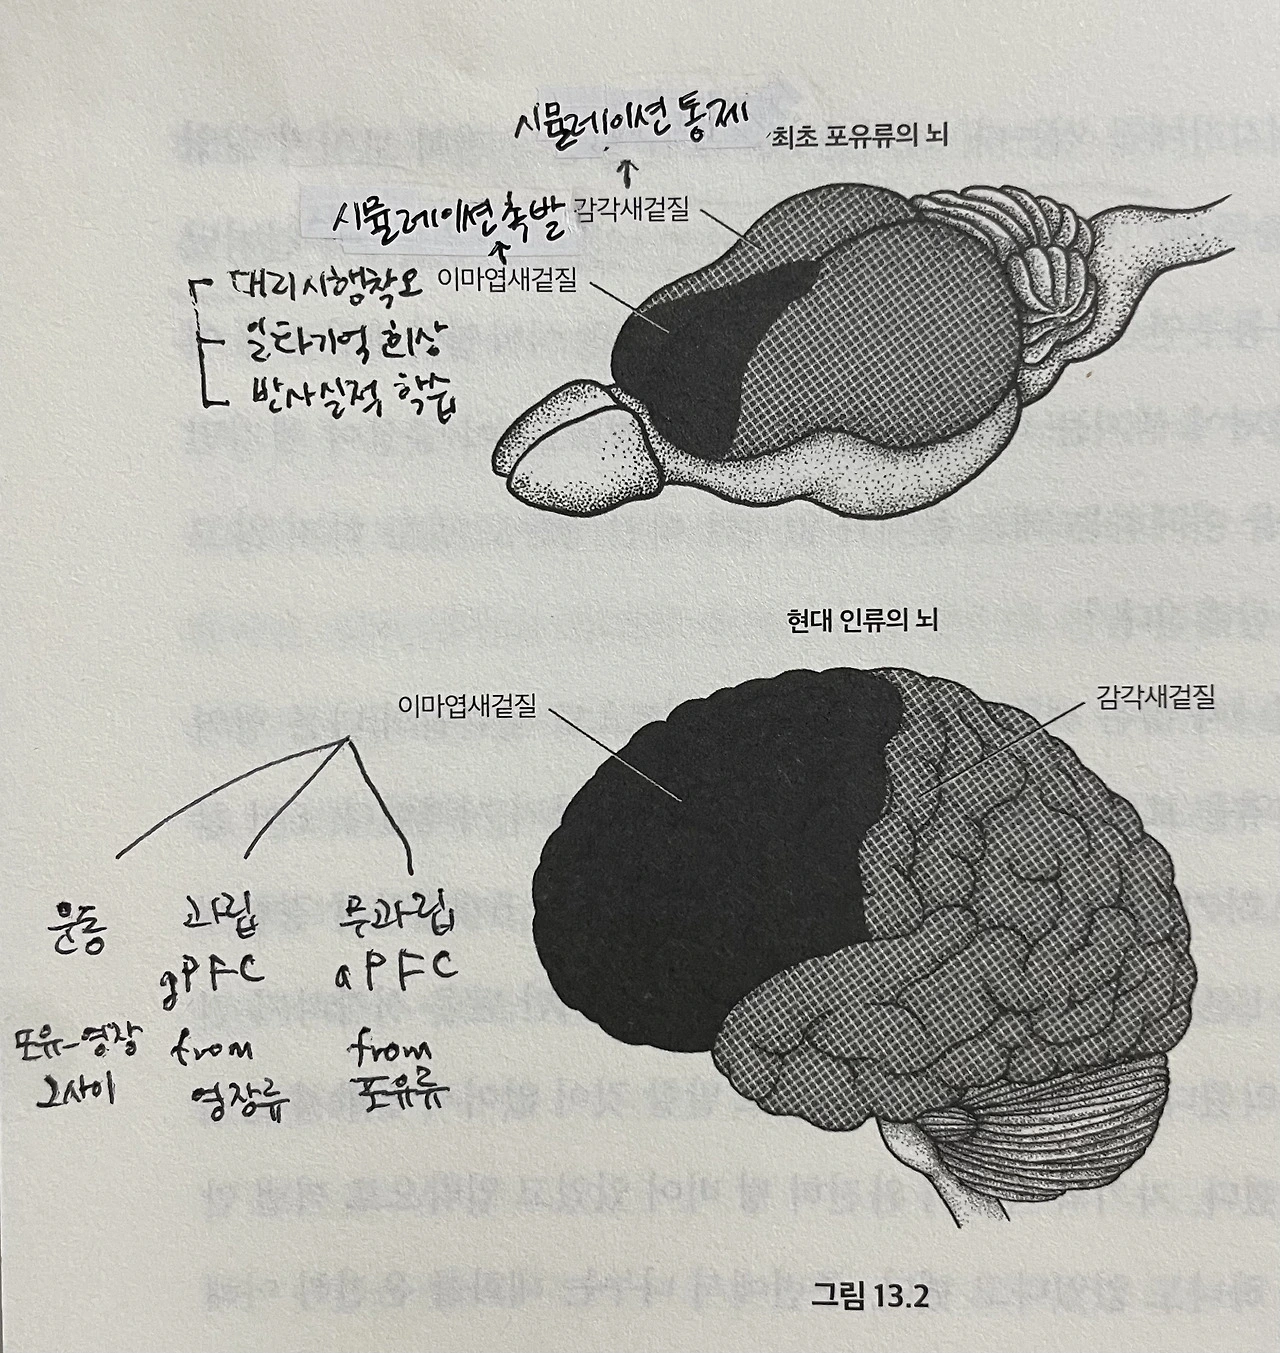 시뮬레이션 통제
최초 포유류의 뇌
시뮬레이션 촉발
감각새겉질
이마엽새겉질
대리시행착오
일화기억 회상
반사실적 학습
현대 인류의 뇌
이마엽새겉질
감각새겉질
운동
과립
무과립
gPFC
aPFC
포유-영장
그사이
from
영장류
from
포유류
그림 13.2